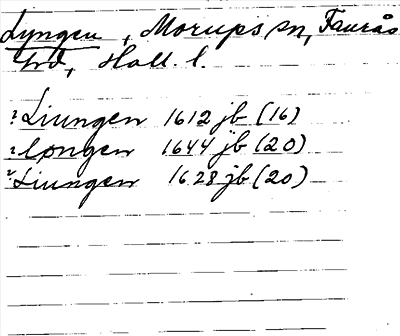 Lyngen, Morups sn, Faurås
hd, Hall. l.
? Liungen 1612 jb (16)
? Longen 1644 jb (20)
? Liungen 1628 jb (20)